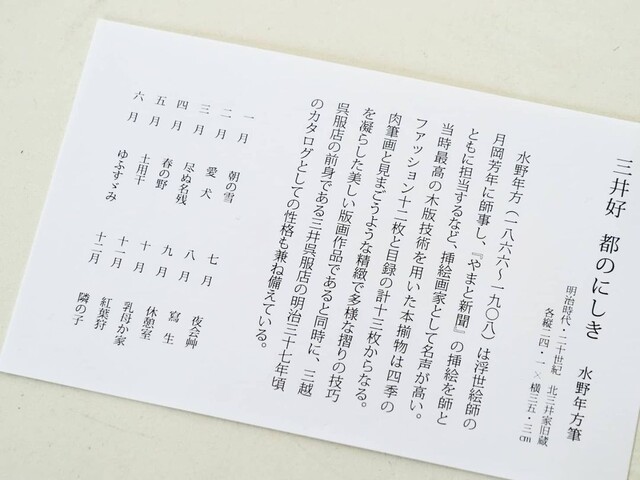 三井好　都のにしき　水野年方筆
明治時代・二十世紀　北三井家旧蔵
各縦二四・一×横三五・三cm
水野年方（一八六六～一九〇八）は浮世絵師の
月岡芳年に師事し、『やまと新聞』の挿絵を師と
ともに担当するなど、挿絵画家として名声が高い。
当時最高の木版技術を用いた本揃物は四季の
ファッション十二枚と目録の計十三枚からなる。
肉筆画と見まごうような精緻で多様な摺りの技巧
を凝らした美しい版画作品であると同時に、三越
呉服店の前身である三井呉服店の明治三十七年頃
のカタログとしての性格も兼ね備えている。
一月　朝の雪　七月　夜会艸
二月　愛犬　八月　寫生
三月　尽ぬ名残　九月　休憩室
四月　春の野　十月　乳母か家
五月　土用干　十一月　紅葉狩
六月　ゆふすゞみ　十二月　隣の子